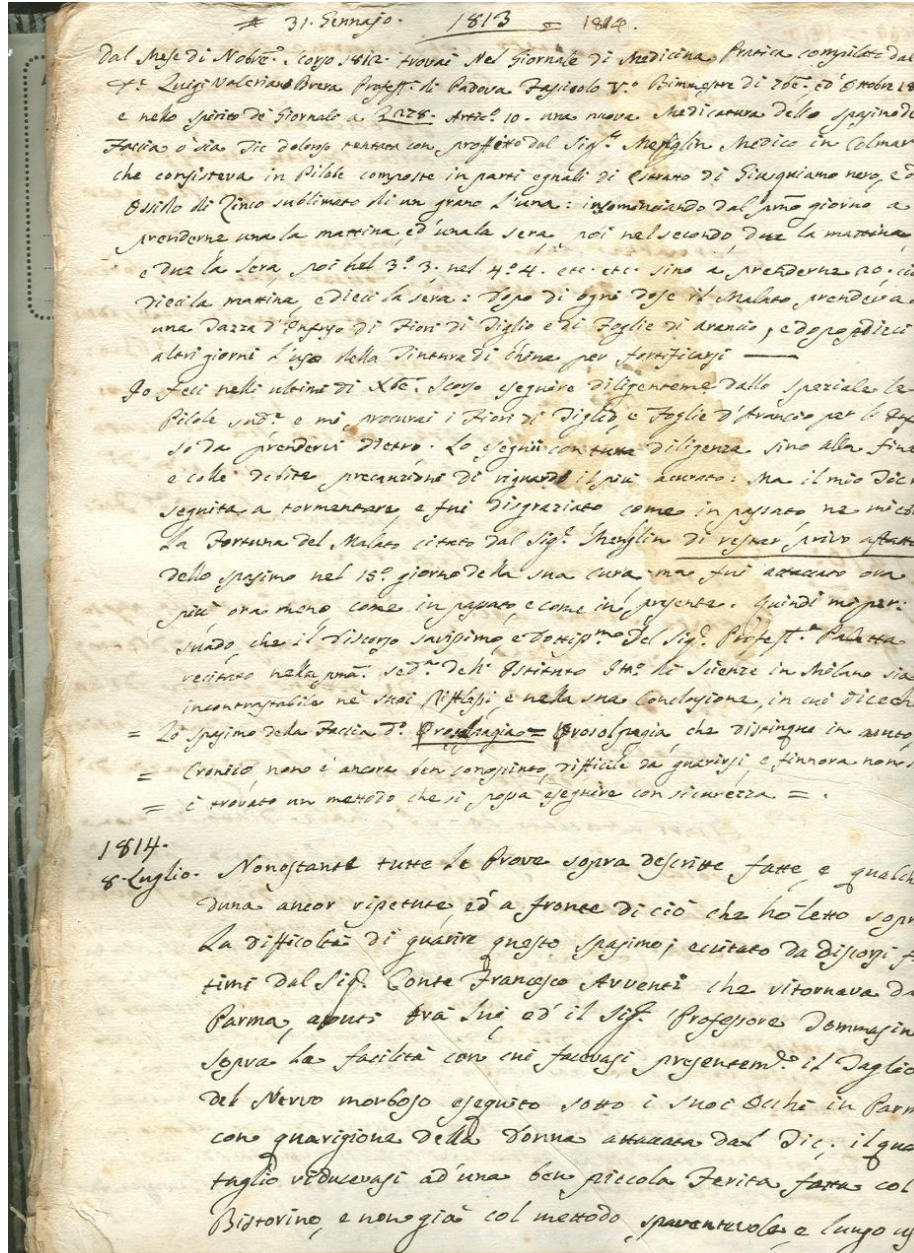 31. Gennajo. 1813 = 1814.
Dal Mese di Nobre. scorso 1812. trovai Nel Giornale di Medicina Pratica compilato dal
Luigi Valeriano Brera Profess. di Padova Fascicolo V.o Bimmestre di 7bre. ed Ottobre 18
e nello spirito de Giornale a 2278. Artic.o 10. una nuova Medicatura dello spasimo de
Faccia o sia Tic doloroso tentata con proffitto dal Sig.r Meglin Medico in Colmar
che consisteva in Pilole composte in parti eguali di Estrato di Giusquiamo nero, ed
Ossido di Zinco sublimato di un grano l'una: incominciando dal pmo giorno a
prenderne una la mattina, ed una la sera, poi nel secondo, due la mattina,
e due la sera, poi nel 3.o 3. nel 4.o 4. etc. etc. sino a prenderne 20. cio
dieci la mattina, e dieci la sera: dopo di ogni dose il Malato, prendeva
una Tazza d'Infuso di Fiori di Tiglio e di Foglie di arancio, e dopo dieci
altri giorni l'uso della Tintura di China per fortificarsi —
Io feci nelli ultimi di Xbre. scorso eseguire diligenteme. dallo speziale le
Pilole sud.e e mi procurai i Fiori di Tiglio, e Foglie d'Arancio per l'Infu
so da prendervi dietro. Lo seguii con tutta diligenza sino alla fine
e colle debite precauzioni di riguardo il più accurato: Ma il mio Tic
seguita a tormentare, e fui disgraziato come in passato ne mi
La Fortuna del Malato citato dal Sig.r Menglin di restar privo affatto
dello spasimo nel 15.o giorno della sua cura, ma fui attaccato ora
più, ora meno come in passato, e come in presente. Quindi mi per:
suado, che il Discorso savissimo, e dottiss.mo del Sig.r Profess.r Paletta
recitato nella pma. sed.a dell' Istituto Itto. di Scienze in Milano sia
incontrastabile ne suoi Riflessi, e nella sua Conclusione, in cui dice ch
= Lo spasimo della Faccia d.o Prosolpagia = Prosolpagia, che distingue in acuto,
= Cronico, non è ancora ben conosciuto, difficile da guarirsi, e finnora non s
= è trovato un mettodo che si possa eseguire con sicurezza = .
1814.
8. Luglio. Nonostante tutte le Prove sopra descritte fatte, e qualch
duna ancor ripetute, ed a fronte di ciò che hò letto sopr
La difficoltà di guarire questo spasimo; eccitato da discorsi f
timi dal Sig.r Conte Francesco Avventi che ritornava da
Parma, avuti trà Lui, ed il Sig.r Professore Tommasin
sopra la facilità con cui facevasi presentem.e il Taglio
del Nervo morboso eseguito sotto i suoi Occhi in Parm
con guarigione della Donna attaccata dal Tic; il qua
taglio riducevasi ad una ben piccola Ferita fatta col
Bistorino, e non già col mettodo spaventevole, e lungo